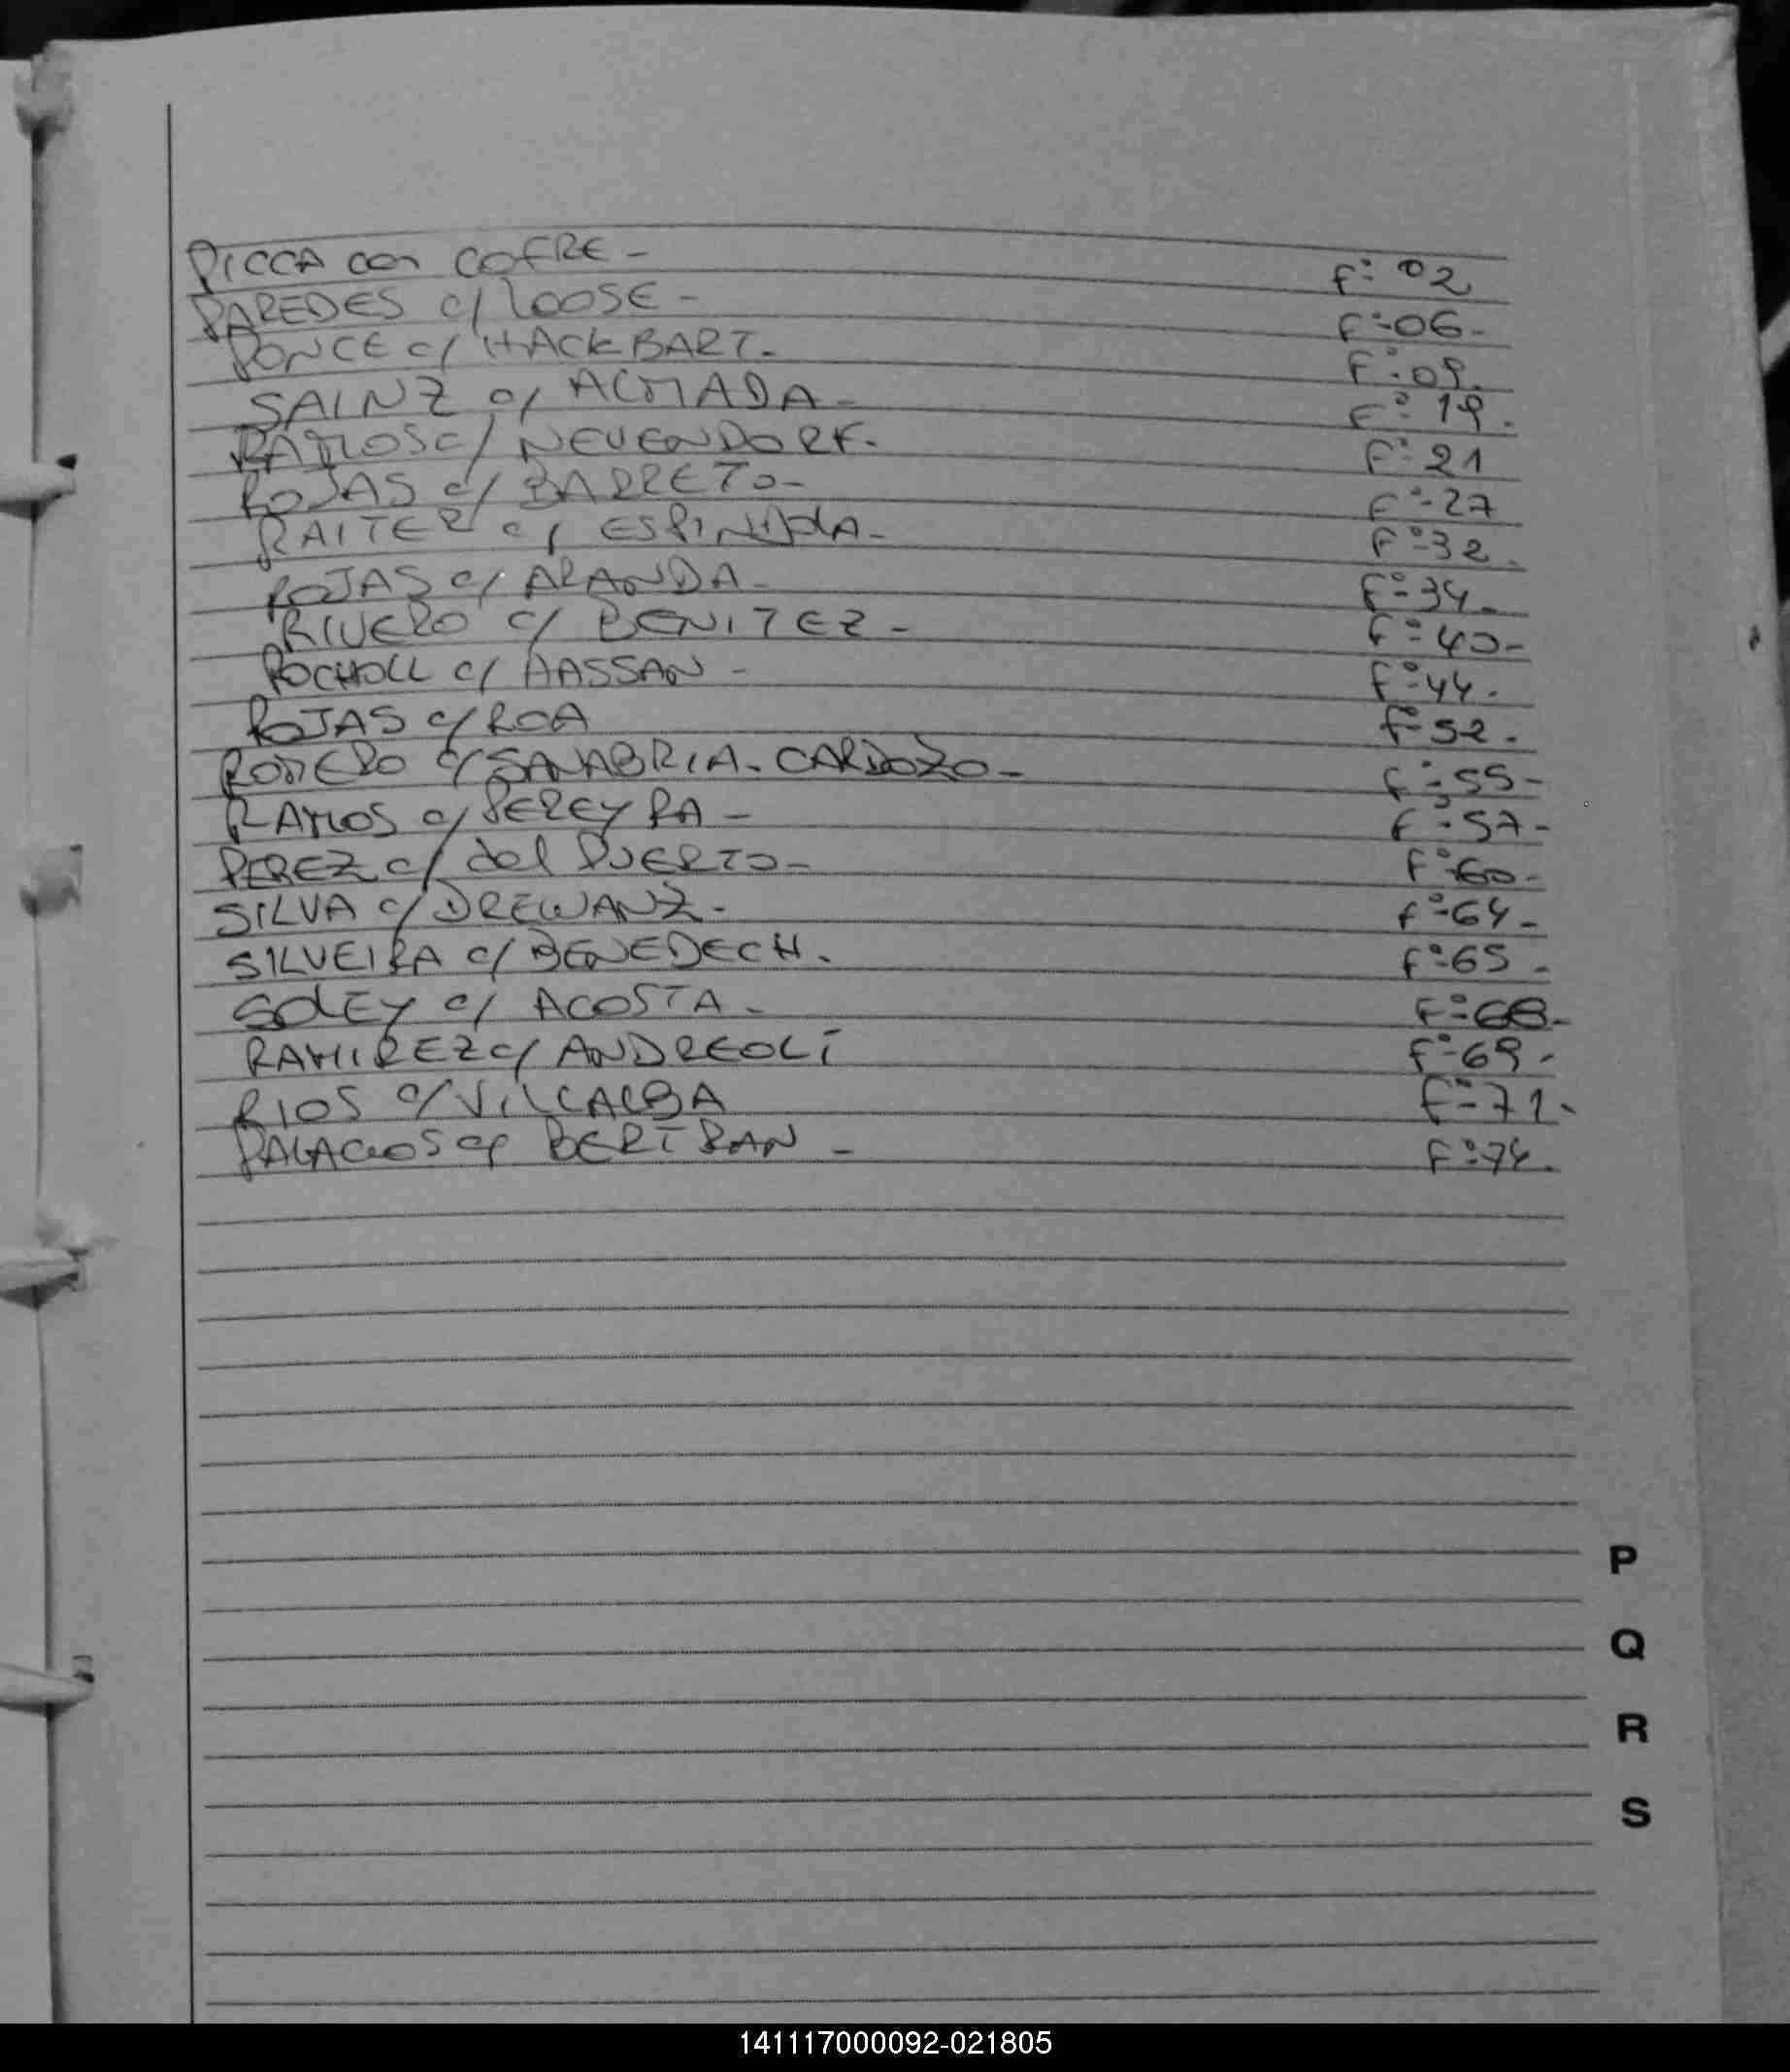 PICCA con COFRE - Fº 02
PAREDES c/ LOOSE - Fº-06-
PONCE c/ HACKBART. Fº-09.
SAINZ c/ ALMADA - Fº 19.
RAMOS c/ NEUENDORF. Fº 21
ROJAS c/ BARRETO - Fº-27
RAITER c/ ESPINDOLA - Fº-32.
ROJAS c/ ARANDA - Fº-34-
RIVERO c/ BENITEZ - Fº-40-
POCHOLL c/ HASSAN - Fº-44.
ROJAS c/ ROA Fº-52.
ROMERO c/ SANABRIA. CARDOZO - Fº-55-
RAMOS c/ PEREYRA - Fº-57-
PEREZ c/ del PUERTO - Fº-60-
SILVA c/ DREWANZ. Fº-64-
SILVEIRA c/ BENEDECH. Fº-65-
SOLEY c/ ACOSTA - Fº-68-
RAMIREZ c/ ANDREOLI Fº-69-
RIOS c/ VILLALBA Fº-71-
PALACIOS c/ BERTRAN - Fº-74.
P
Q
R
S
141117000092-021805